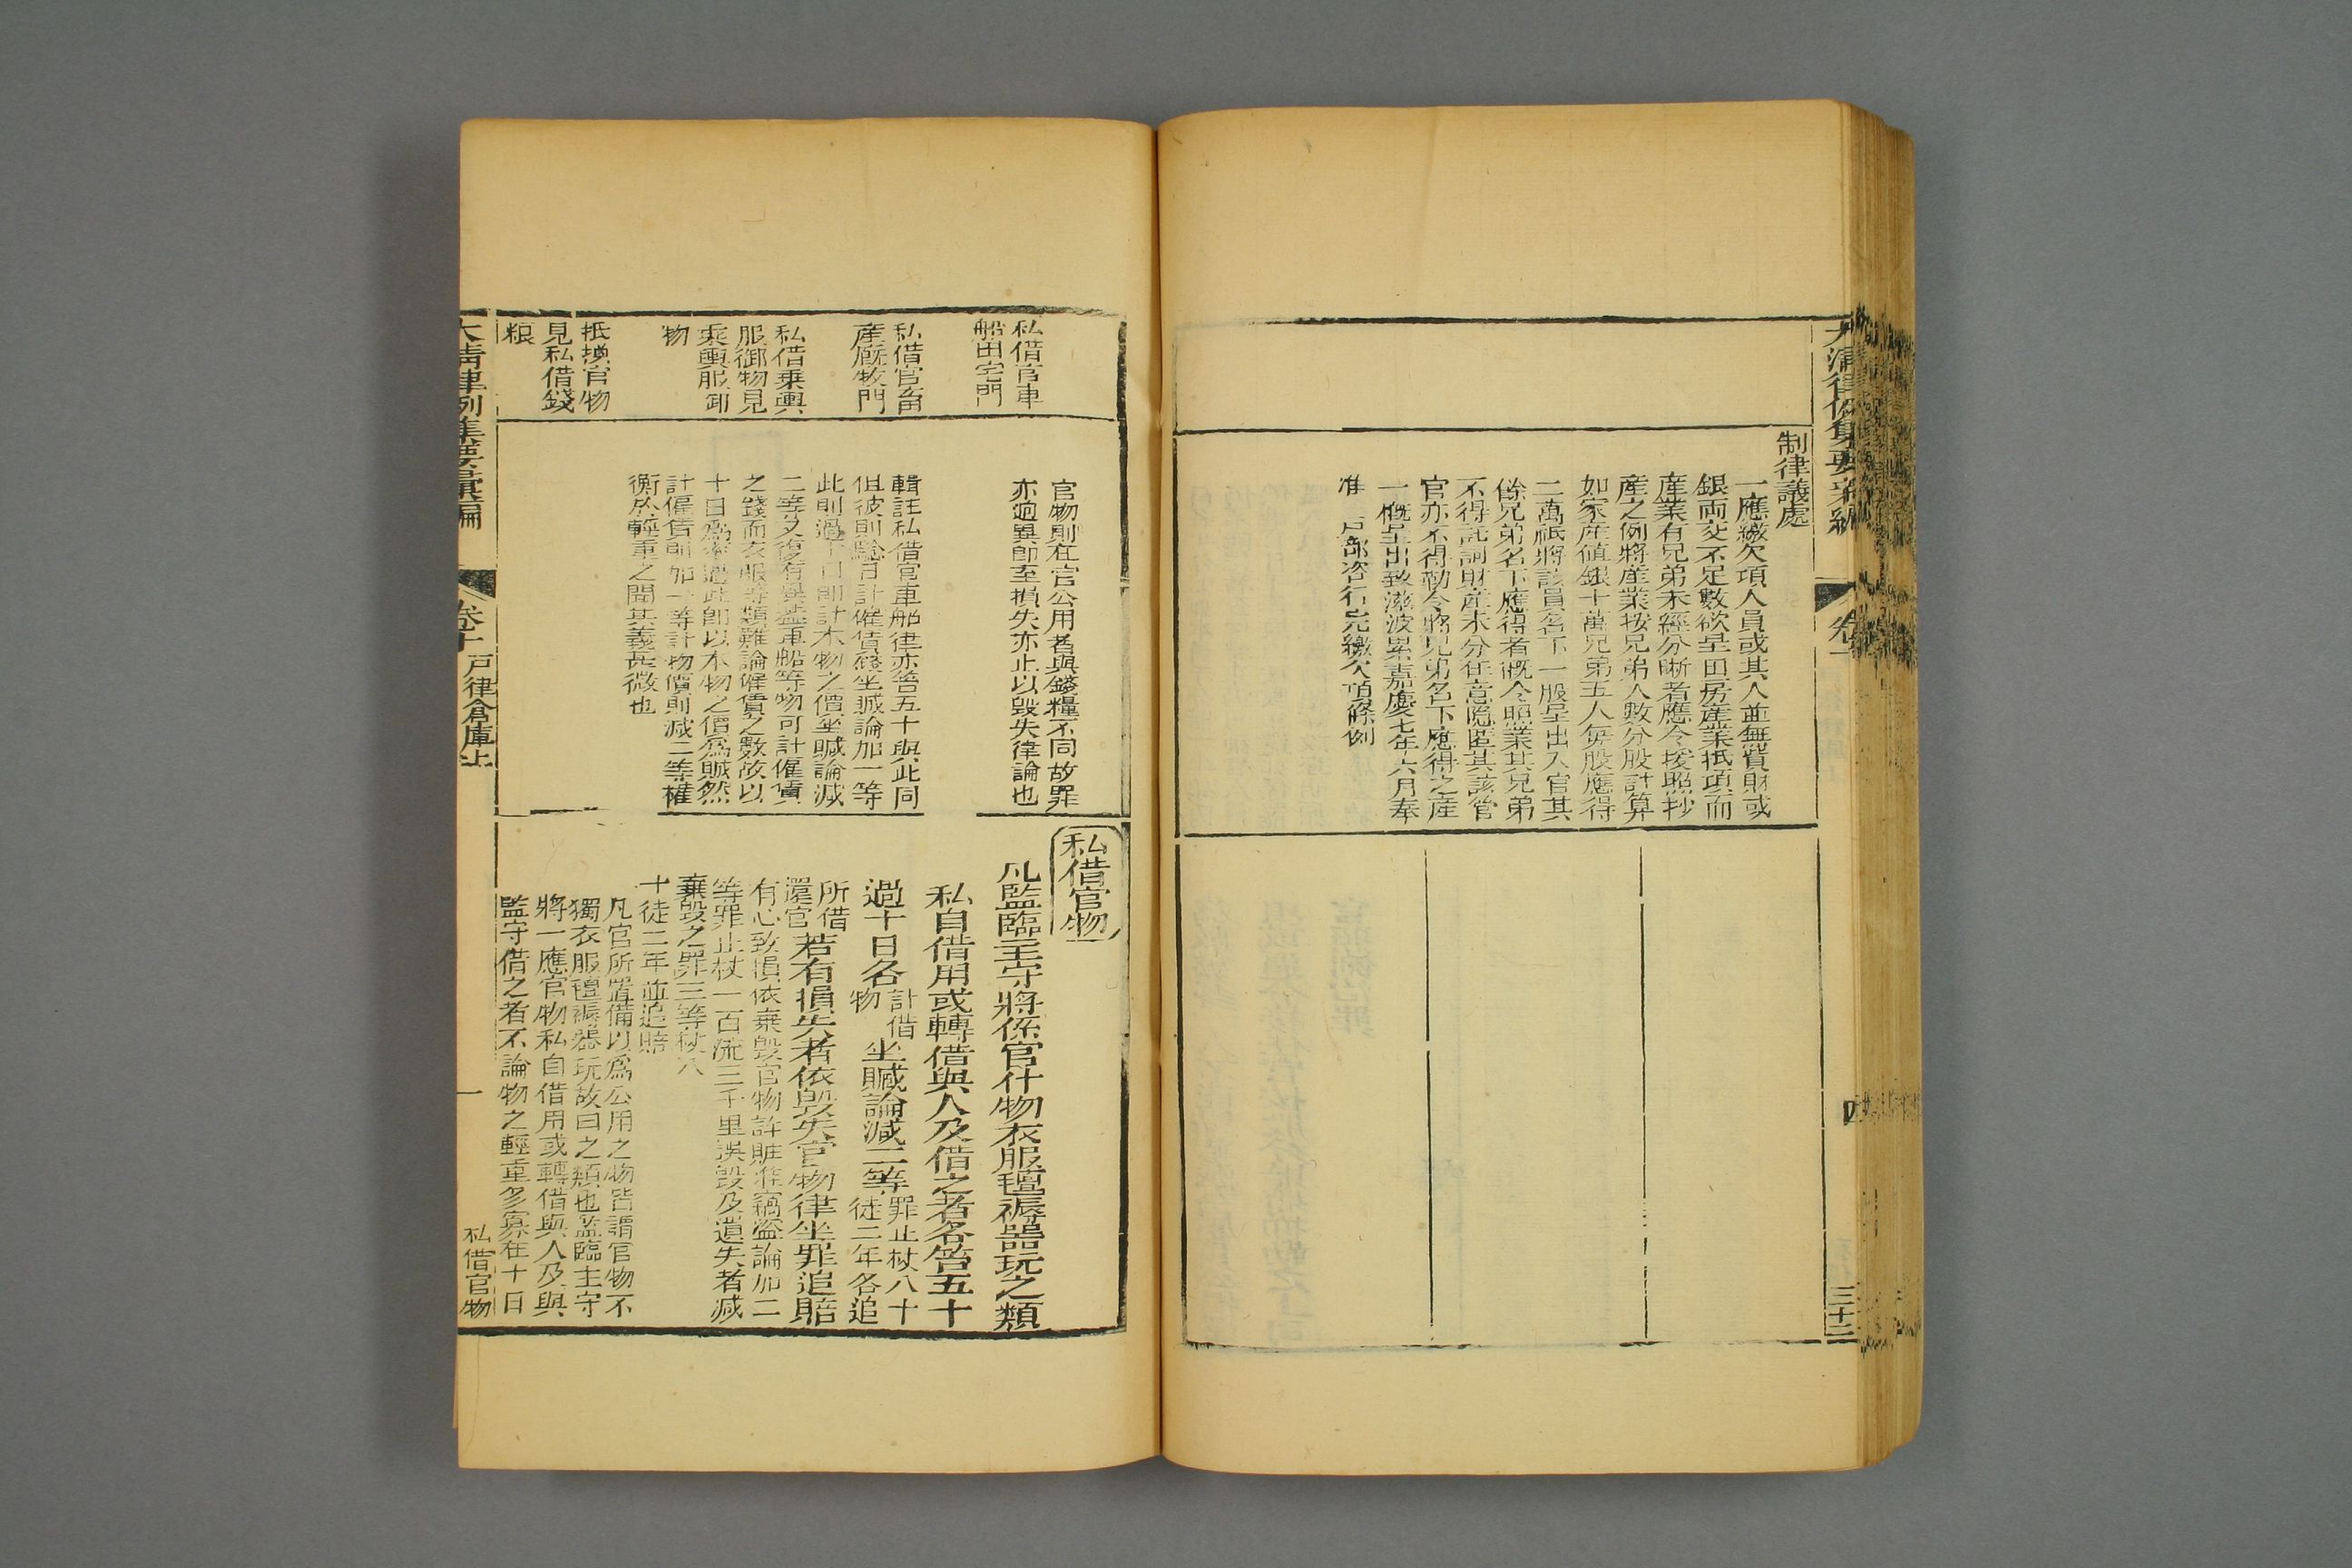 制律議處
一應繳欠項人員或其人並無貲財或
銀両交不足數欲呈田房産業抵項而
産業有兄弟未經分晰者應令按照抄
産之例將産業按兄弟人數分股計算
如家産值銀十萬兄弟五人每股應得
二萬祇將該員名下一股呈出入官其
餘兄弟名下應得者槪令照業其兄弟
不得託詞財産未分任意隐匿其該管
官亦不得勒令將兄弟名下應得之産
一槪呈出致滋波累嘉慶七年六月奉
准 戸部咨行完繳欠項條例
四
三十三
私借官車
船田宅門
私借官畜
産廐牧門
私借乗輿
服御物見
乘輿服御
物
抵換官物
見私借錢
粮
官物則在官公用者與錢糧不同故罪
亦逈異卽至損失亦止以毀失律論也
輯註私借官車船律亦笞五十與此同
但彼則驗日計僱賃錢坐贓論加一等
此則過十日卽計本物之價坐贓論減
二等又復有異葢車船等物可計僱賃
之錢而衣服等類難論僱賃之數故以
十日爲率過此卽以本物之價爲贓然
計僱賃則加一等計物價則減二等權
衡於輕重之間其義甚微也
私借官物
凡監臨主守將係官什物衣服氊褥器玩之類
私自借用或轉借與人及借之者各笞五十
過十日各計借物坐贓論減二等罪止杖八十徒二年各追
所借還官若有損失者依毀失官物律坐罪追賠
有心致損依棄毀官物計贓准竊盗論加二
等罪止杖一百流三千里誤毀及遺失者減
棄毀之罪三等杖八
十徒二年並追賠
凡官所置備以爲公用之物皆謂官物不
獨衣服氊褥器玩故曰之類也監臨主守
將一應官物私自借用或轉借與人及與
監守借之者不論物之輕重多寡在十日
大清律例集要彙編
卷十
戸律倉庫上
一
私借官物